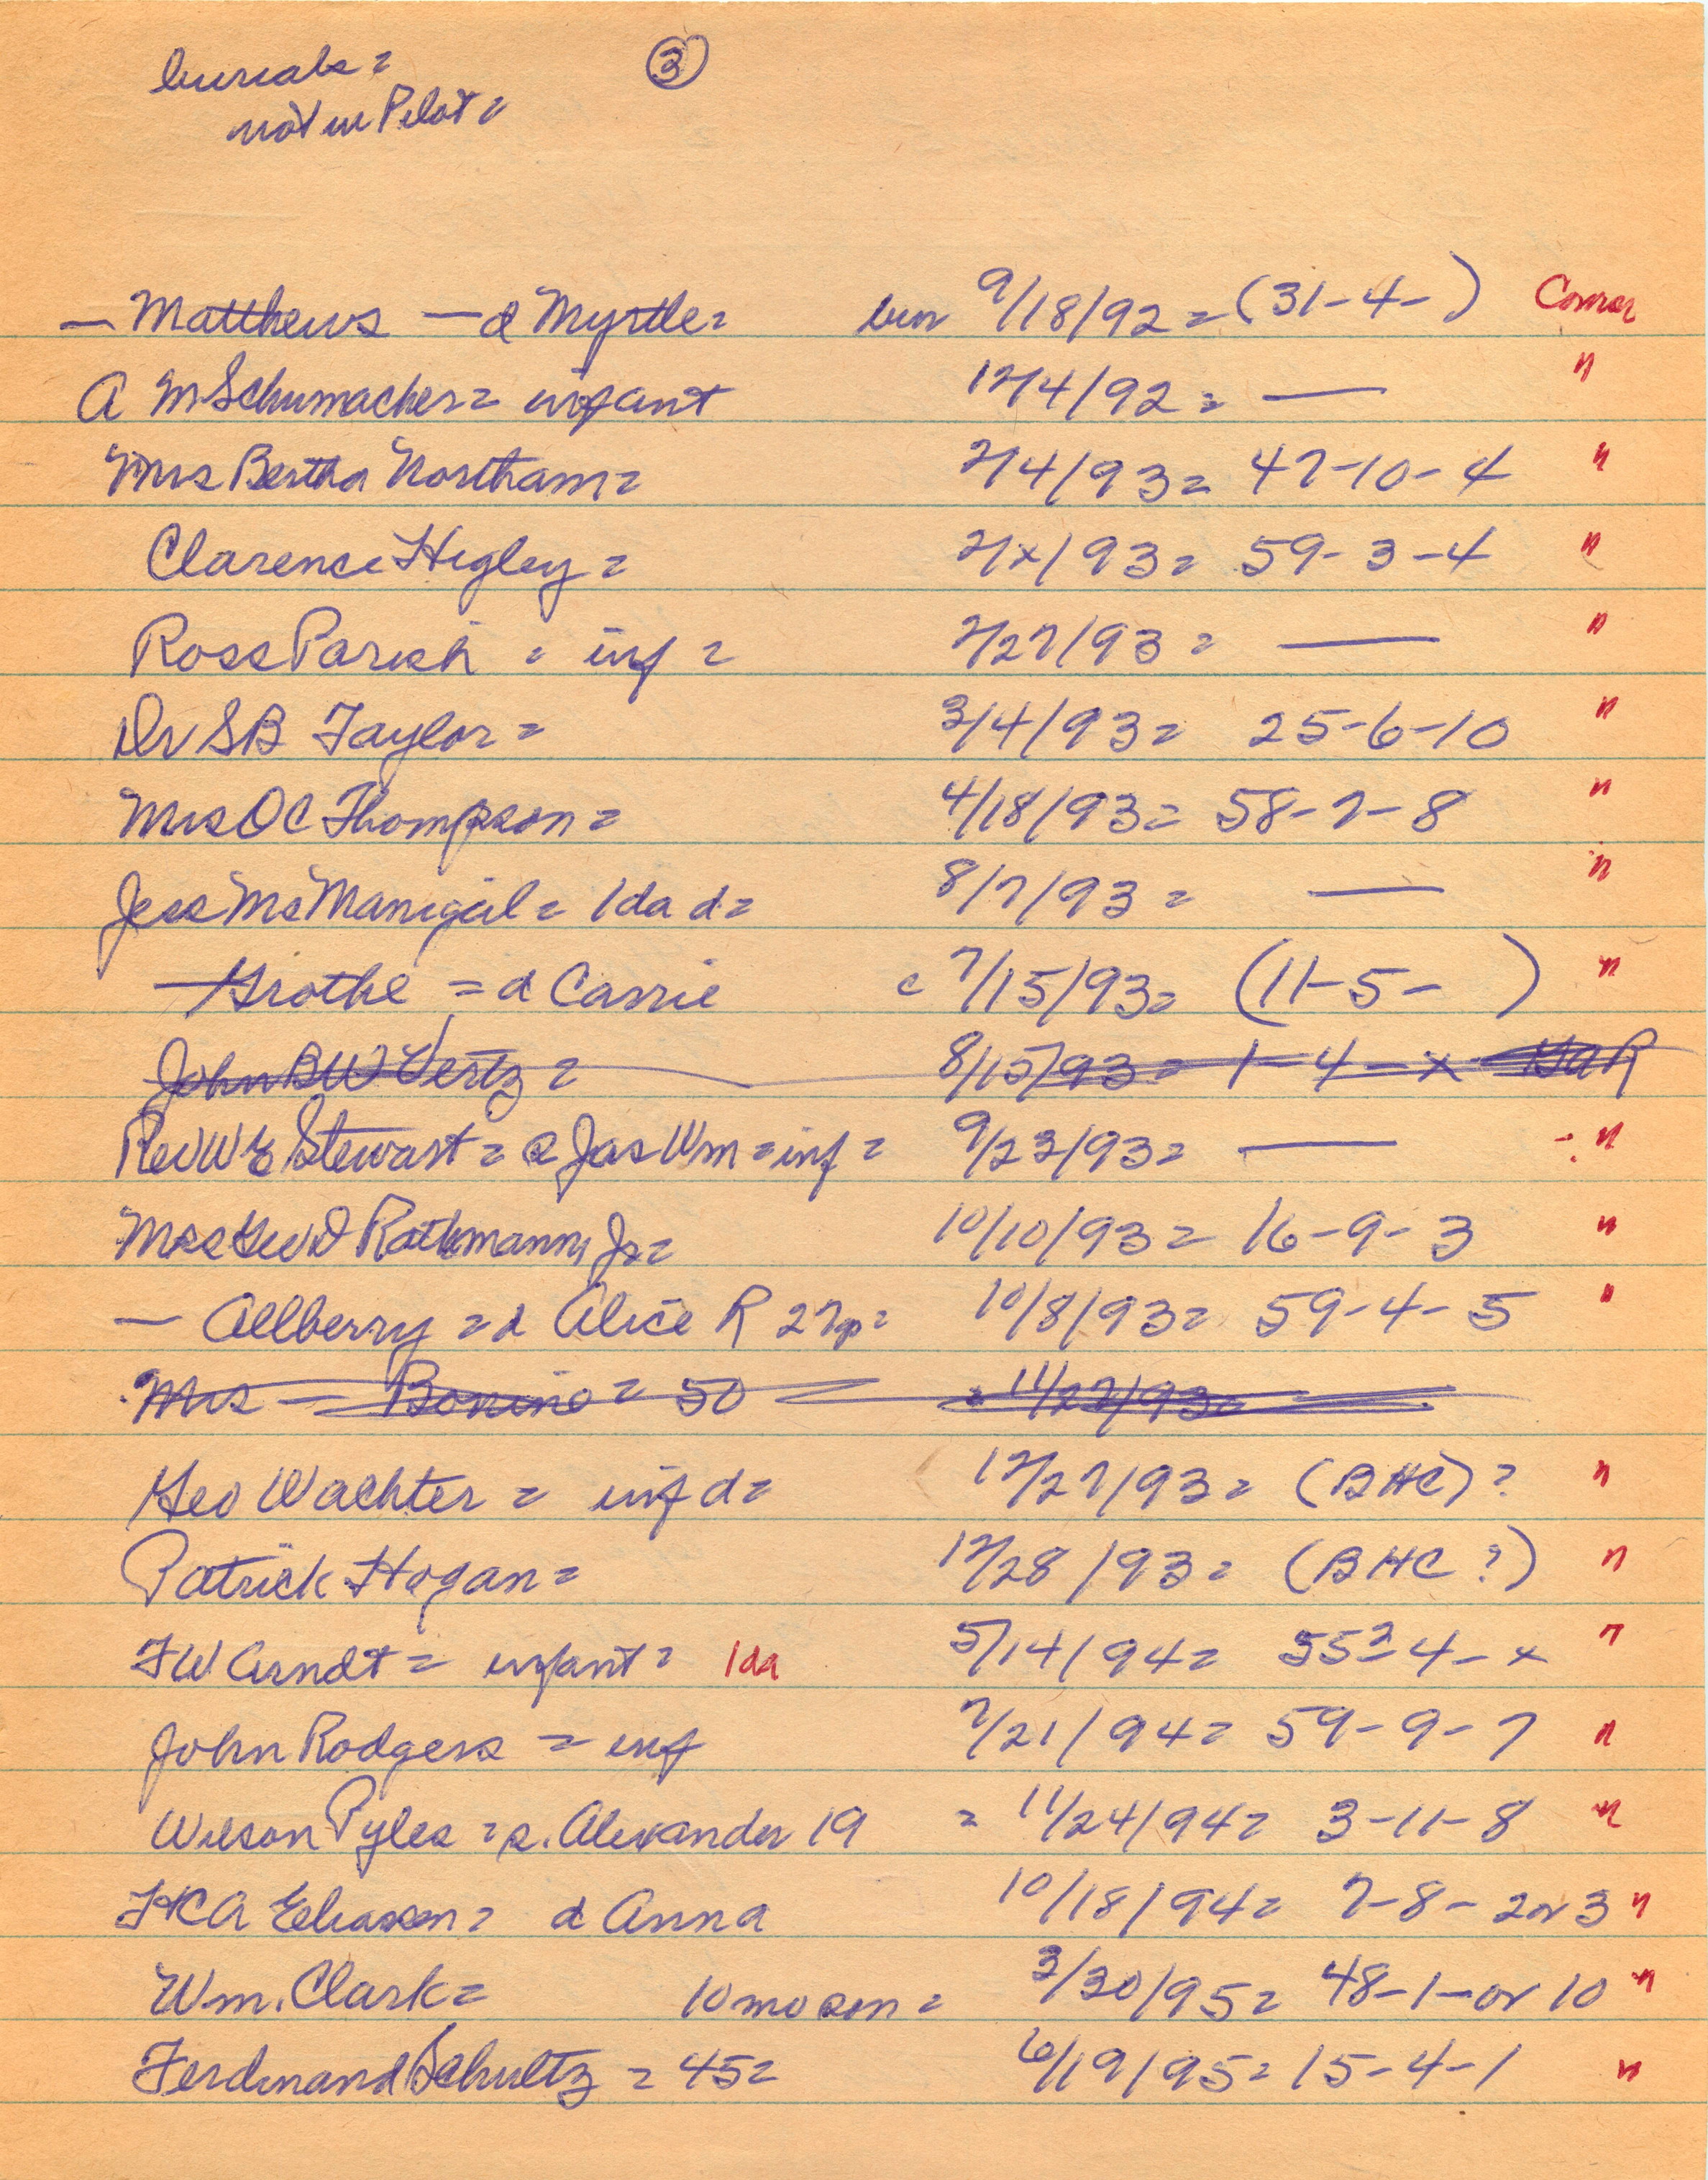 burials =
③
not in Pilot =
— Matthews — d Myrtle = bur 9/18/92 = (31-4- )
A M Schumacher = infant 12/4/92 = — "
Mrs Bertha Northam = 2/4/93 = 47-10-4 "
Clarence Higley = 2/x/93 = 59-3-4 "
Ross Parish = inf = 2/27/93 = — "
Dr S B Taylor = 3/4/93 = 25-6-10 "
Mrs O C Thompson = 4/18/93 = 58-7-8 "
Jess McManigal = 1 da d = 8/7/93 = — "
— Grothe = d Carrie c 7/15/93 = (11-5- ) "
John B W Wertz = 8/15/93 = 1-4-x GAR
Rev W E Stewart = s Jas Wm = inf = 9/23/93 = — "
Mrs Geo D Rathmann, Jr = 10/10/93 = 16-9-3 "
— Allberry = d Alice R 27 = 10/8/93 = 59-4-5 "
Mrs — Bonine = 50 = 11/27/93 =
Geo Wachter = inf d = 12/27/93 = (BHC)? "
Patrick Hogan = 12/28/93 = (BHC ?) "
F W Arndt = infant = 1 da 5/14/94 = 55-4-x "
John Rodgers = inf 7/21/94 = 59-9-7 "
Wilson Pyles = s. Alexander 19 = 11/24/94 = 3-11-8 "
H C A Eliasen = d Anna 10/18/94 = 7-8-2 or 3 "
Wm. Clark = 10 mo son = 3/30/95 = 48-1- or 10 "
Ferdinand Schultz = 45 = 6/19/95 = 15-4-1 "